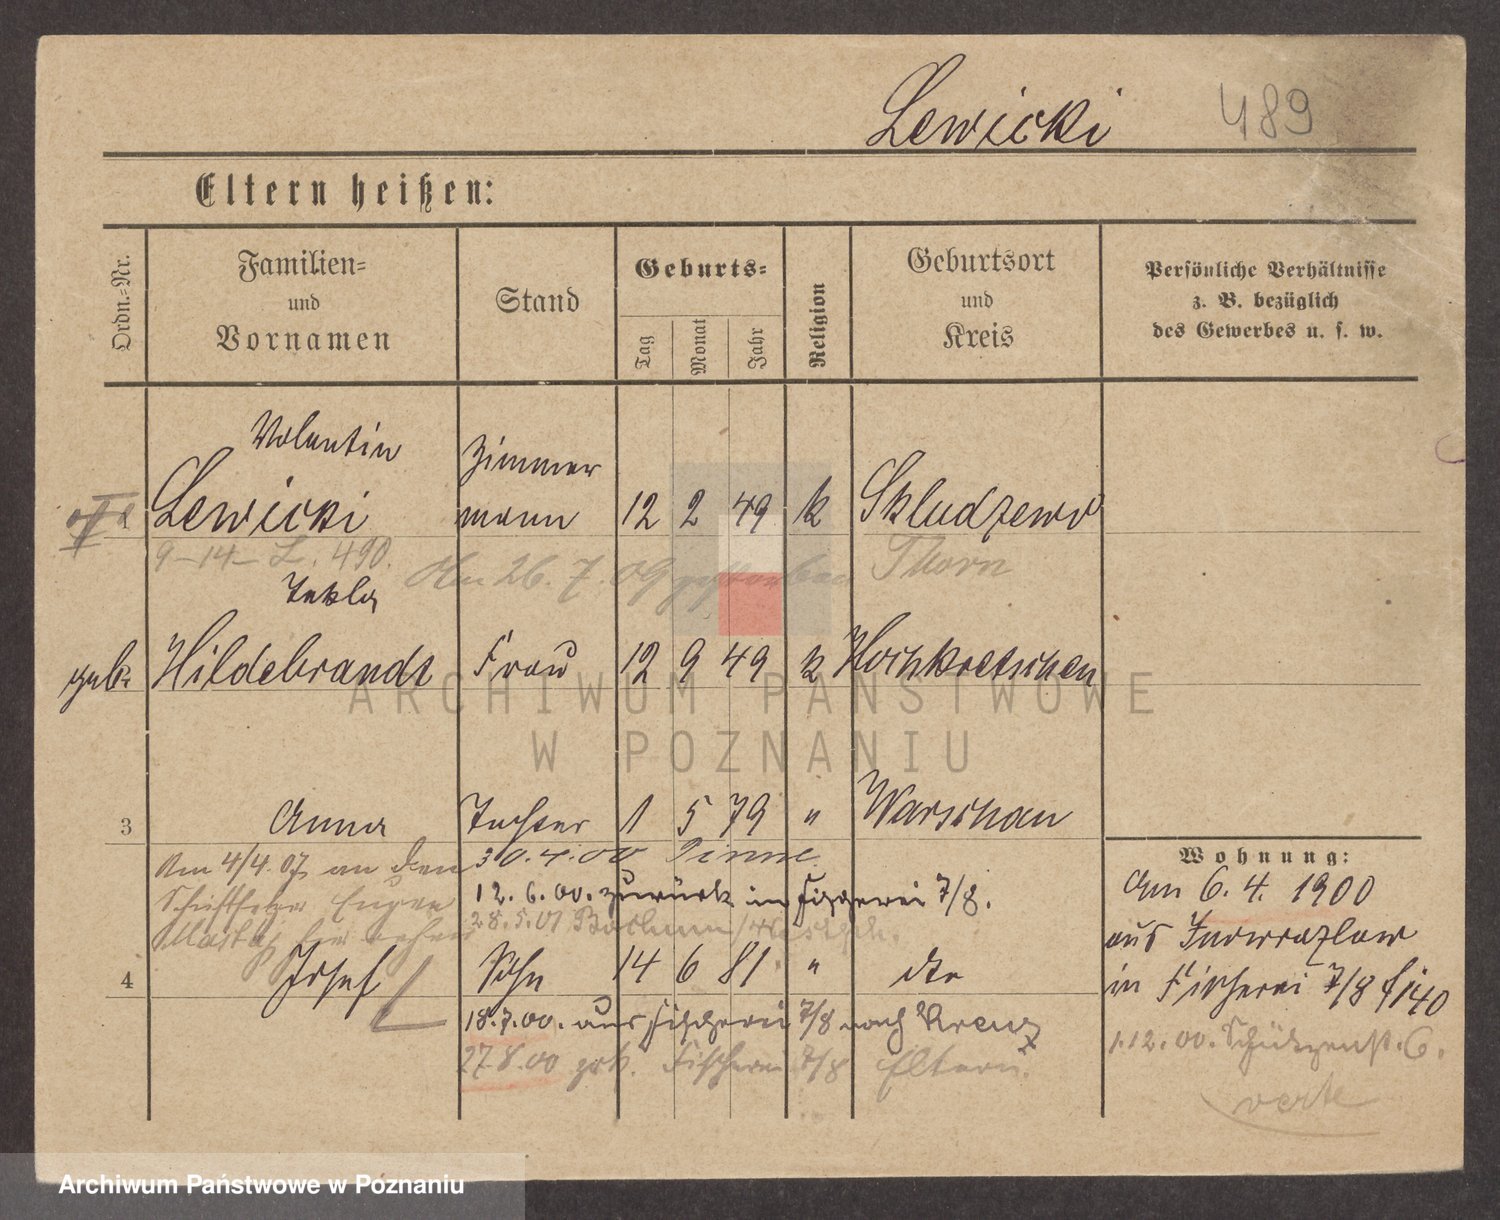 Lewicki 489
Eltern heißen:
Ordn.-Nr.
Familien-
und
Vornamen
Stand
Geburts-
Tag
Monat
Jahr
Religion
Geburtsort
und
Kreis
Persönliche Verhältnisse
z. B. bezüglich
des Gewerbes u. s. w.
Valentin
Lewicki
Zimmer
mann
12 2 49 k Skludzewo
9-14- L. 490.
Am 26.7.09 gestorben
Thorn
Tekla
geb. Hildebrandt Frau 12 9 49 k Hochkretschen
ARCHIWUM PAŃSTWOWE
W POZNANIU
3 Anna Tochter 1 5 79 " Warschau
30.4.00 Pinne.
Am 4/4.07 an den
12.6.00. zurück in Fischerei 7/8.
Eugen
28.5.01 Bochum/Westph.
4 Josef Sohn 14 6 81 " dto
18.7.00. aus Fischerei 7/8 nach Kreuz
27.8.00 zrk. Fischerei 7/8 Eltern.
Wohnung:
Am 6.4.1900
aus Inowrazlaw
in Fischerei 7/8
1.12.00. Schützenst. 6.
verte
Archiwum Państwowe w Poznaniu